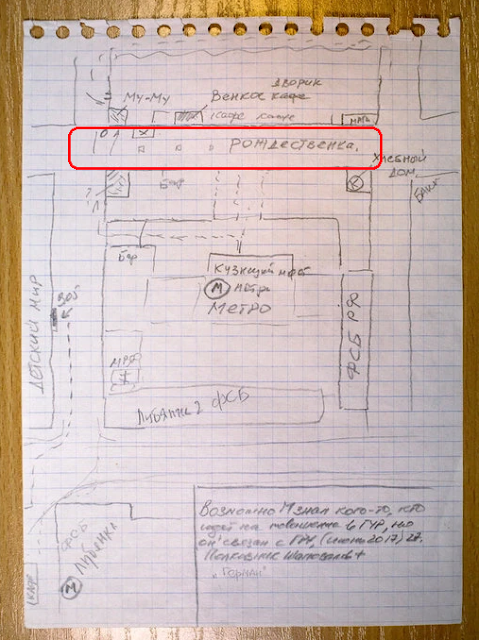 дворик
Му-Му
Венское кафе
кафе кафе
МРЯ
О А
Х
РОЖДЕСТВЕНКА,
ХЛЕБНЫЙ
ДОМ
БАНК
К
Л
КУЗНЕЦКИЙ МОСТ
М метро
МЕТРО
ДЕТСКИЙ МИР
МРЯ
ФСБ РЯ
Лубянка 2 ФСБ
ФСБ
М Лубянка
КАФЕ
Возможно М знал кого-то, кто
идет на повышение в ГУР, но
он связан с ГРУ (июнь 2017) 27.
Полковник Шаповалов +
"Горный"